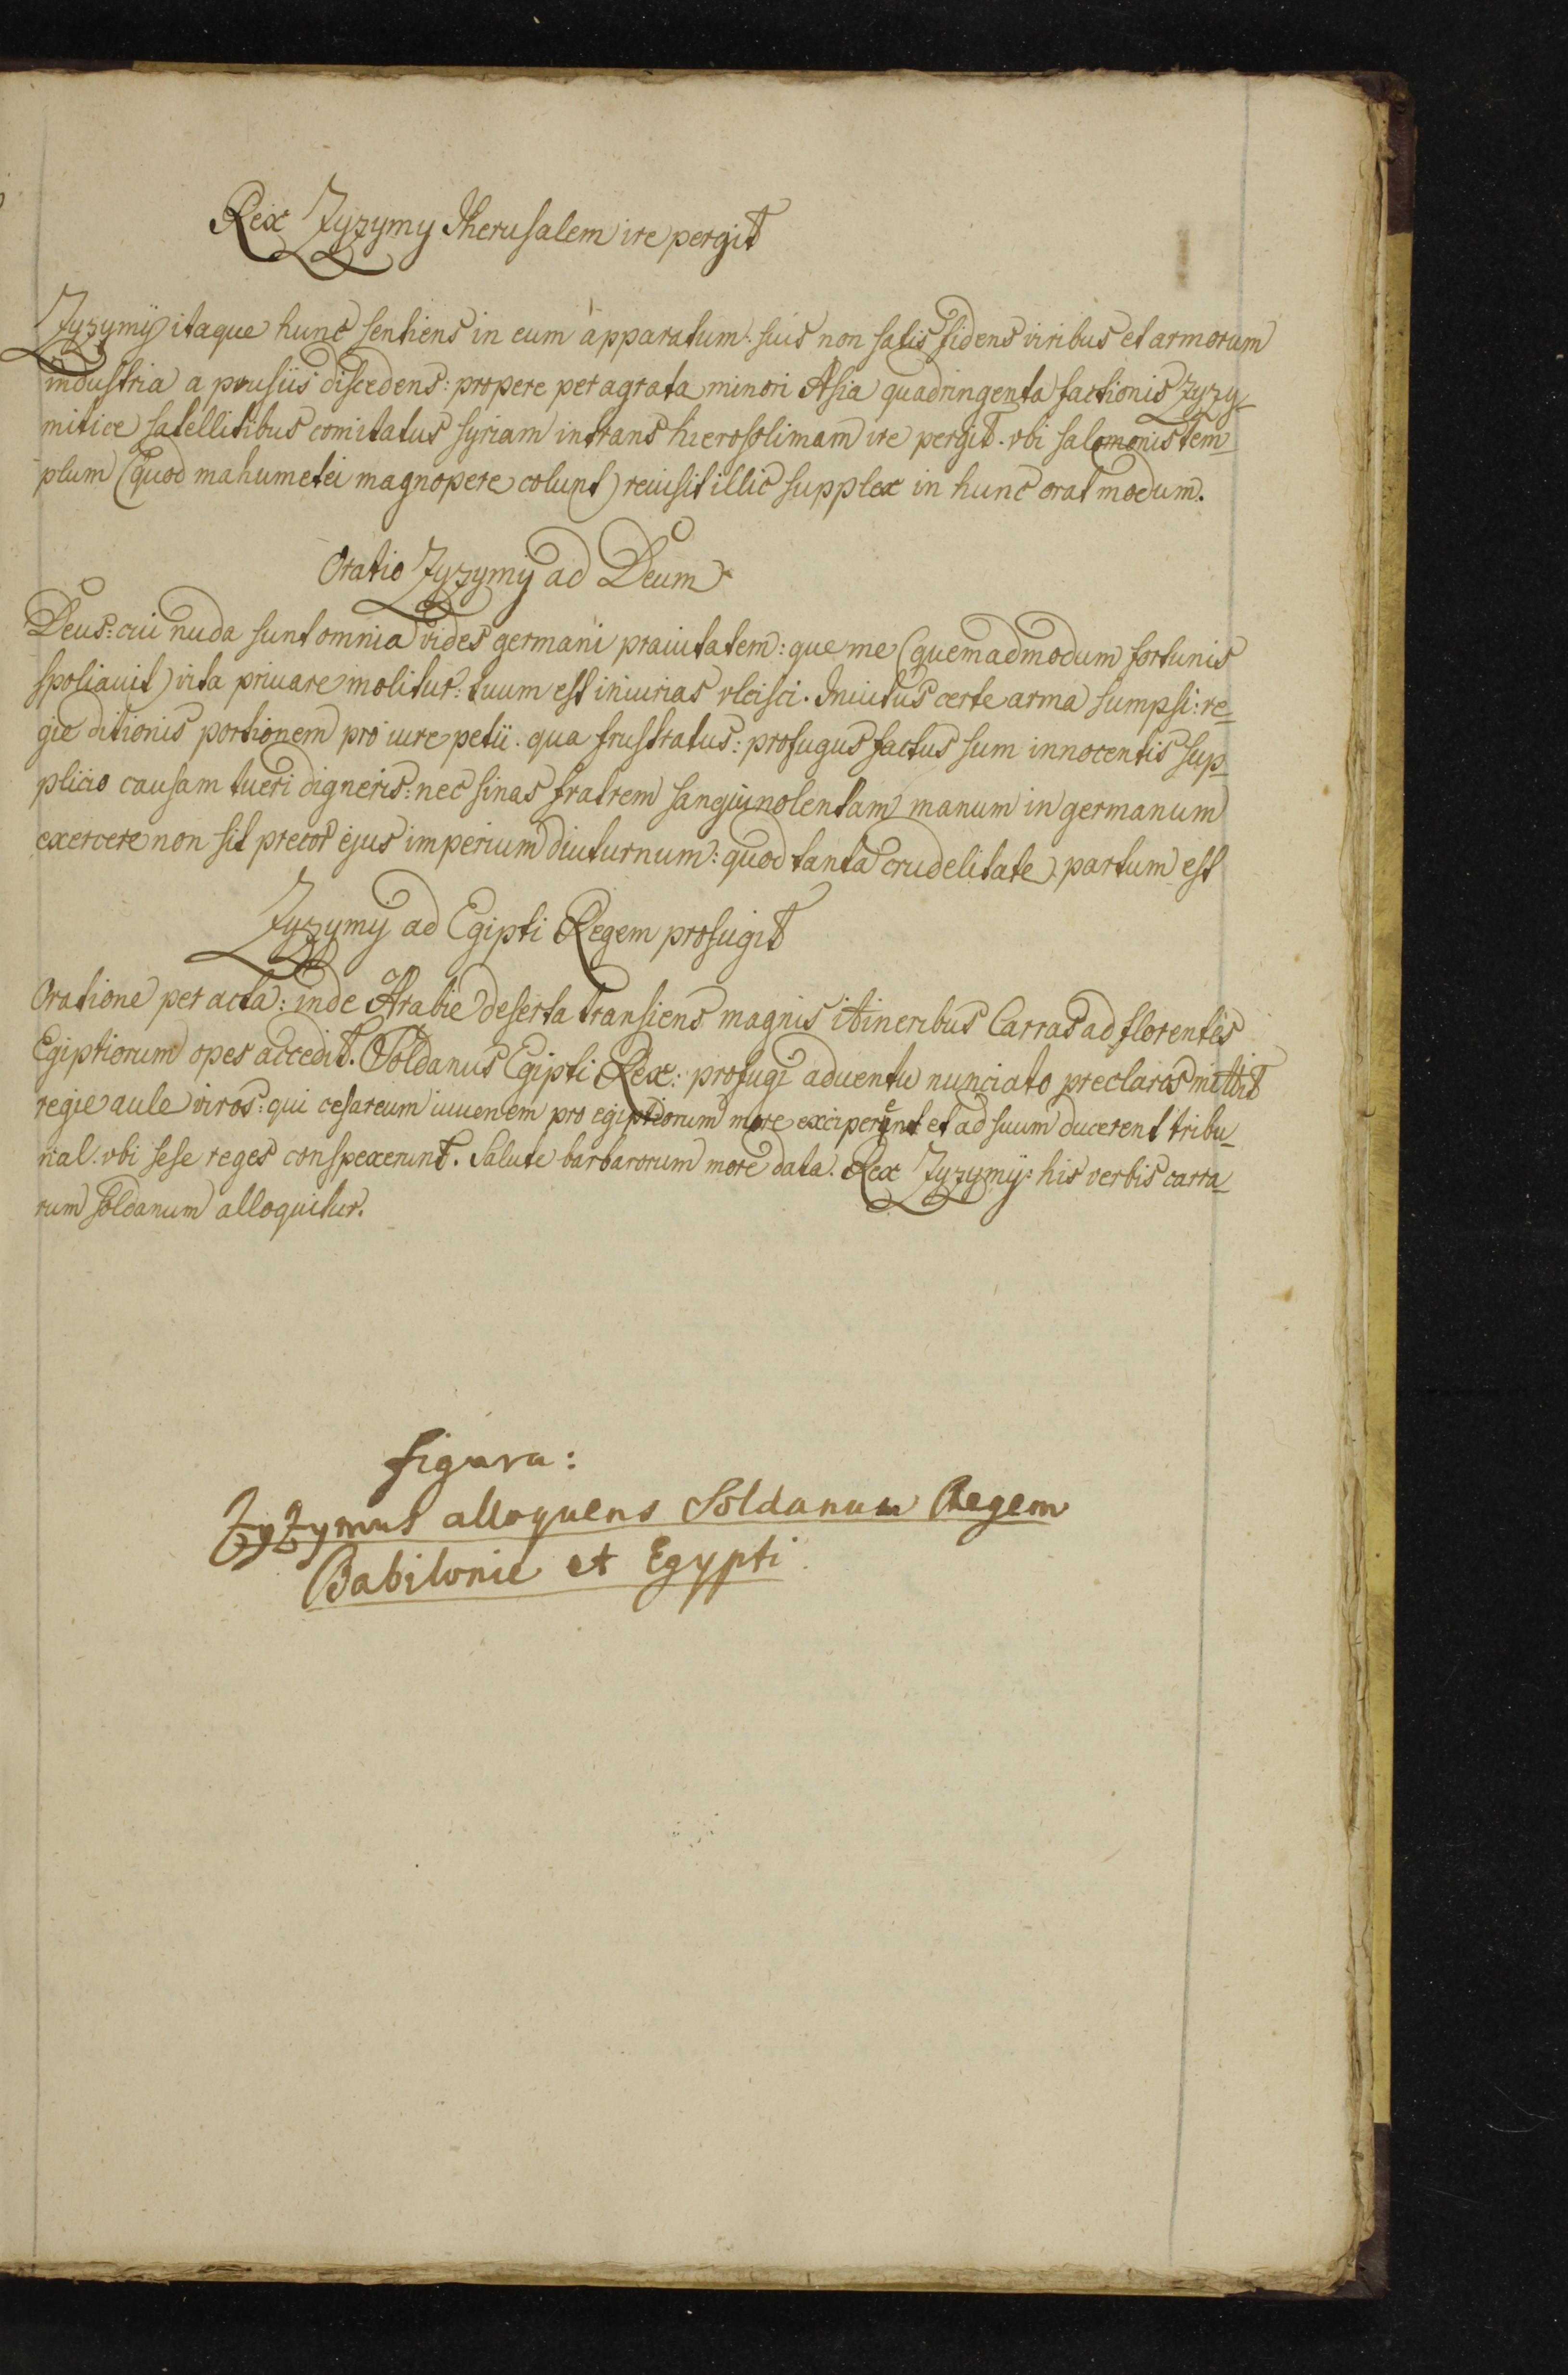 Rex Zyzymy Jherusalem ire pergit
Zyzymÿ itaque hunc sentiens in eum apparatum: suis non satis fidens viribus et armorum
industria a prusiis discedens: propere peragrata minori Asia quadringenta factionis Zyzy-
mitice satellitibus comitatus syriam intrans hierosolimam ire pergit. vbi salomonis tem-
plum (quod mahumetei magnopere colunt) reuisit illic supplex in hunc orat modum.
Oratio Zyzymÿ ad Deum
Deus: cui nuda sunt omnia vides germani prauitatem: que me (quemadmodum fortunis
spoliauit) vita priuare molitur: tuum est iniurias vlcisci. Inuitus certe arma sumpsi: re-
gie ditionis portionem pro iure petii. qua frustratus: profugus factus sum innocentis sup-
plicio causam tueri digneris: nec sinas fratrem sanguinolentam manum in germanum
exercere non sit precor ejus imperium diuturnum: quod tanta crudelitate partum est
Zyzymÿ ad Egipti Regem profugit
Oratione per acta: inde Arabie deserta transiens magnis itineribus Carras ad florentes
Egiptiorum opes accedit. Soldanus Egipti Rex: profugi aduentu nunciato preclaros mittit
regie aule viros: qui cesareum iuuenem pro egiptiorum more exciperent et ad suum ducerent tribu-
nal. vbi sese reges conspexerunt. Salute barbarorum more data. Rex Zyzymÿ: his verbis carra-
rum soldanum alloquitur.
figura:
Zyzymus alloquens Soldanum Regem
Babilonie et Egypti